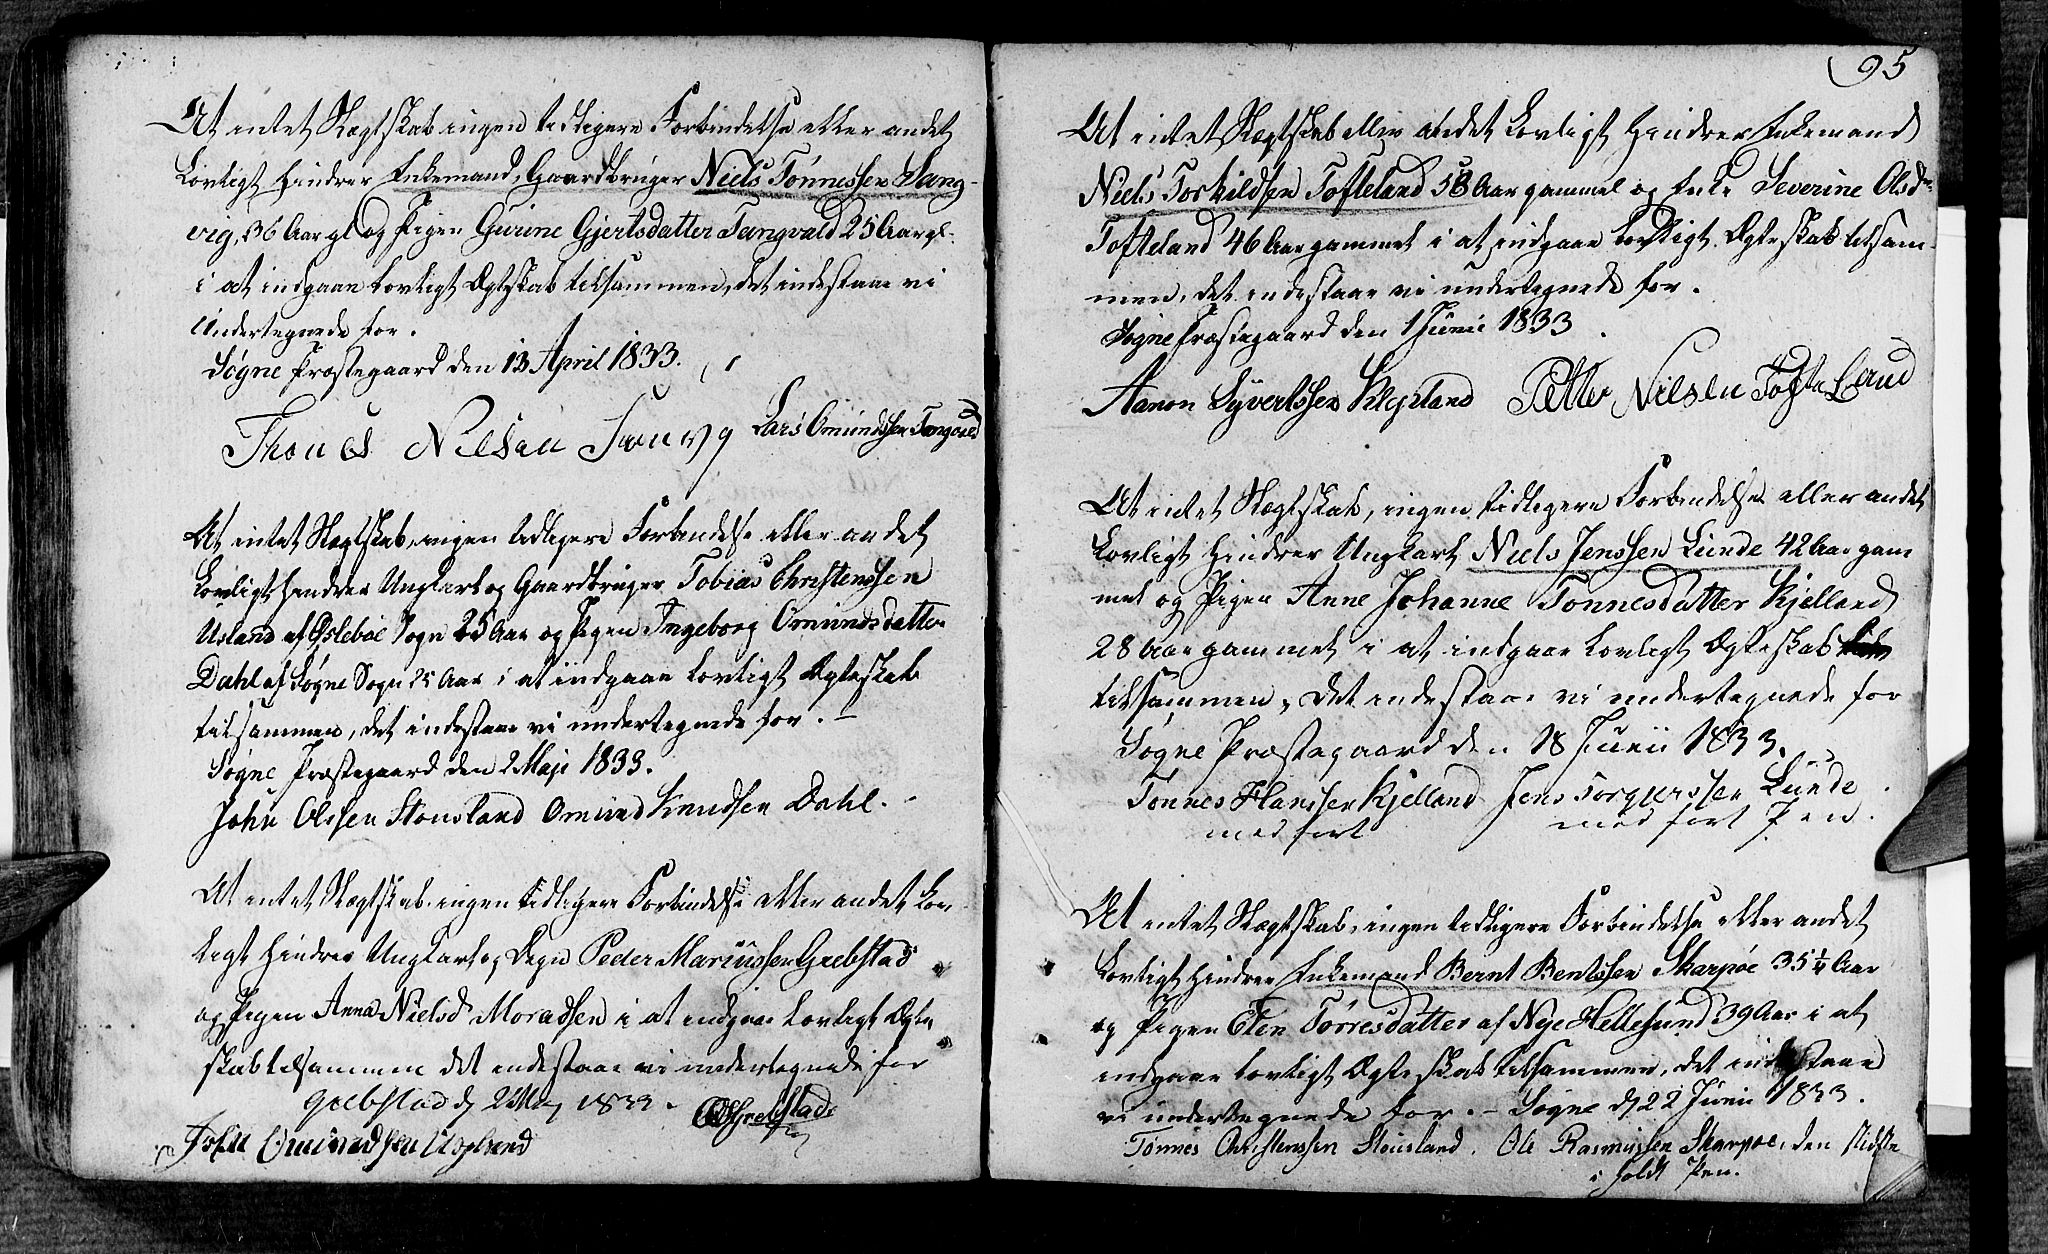 At intet Slægtskab ingen tidligere Forbindelse eller andet
Lovligt hindrer Enkemand, Gaardbruger Niels Tønnessen Sang-
vig, 36 Aar gl og Pigen Gurine Gjertsdatter Tangvald 25 Aar gl.
i at indgaae lovligt Ægteskab tilsammen, det indestaae vi
Undertegnede for.
Søgne Præstegaard den 13 April 1833.
Thones Nilsen Lars Omundssen Tangvald
At intet Slægtskab, ingen tidligere Forbindelse eller andet
Lovligt hindrer Ungkarl og Gaardbruger Tobias Christenssen
Usland af Øslebøe Sogn 25 Aar og Pigen Ingeborg Omundsdatter
Dahl af Søgne Sogn 25 Aar i at indgaae lovligt Ægteskab
tilsammen, det indestaae vi undertegnede for. –
Søgne Præstegaard den 2 Maji 1833.
John Olssen Stousland Omund Knudsen Dahl.
At intet Slægtskab ingen tidligere Forbindelse eller andet Lov-
ligt hindrer Ungkarl og Degn Peder Mariussen Grebstad
og Pigen Anna Nielsd Moradsen i at indgaae lovligt Ægte
skab tilsammen det indestaae vi undertegnede for
Grebstad d 2 May 1833.
Omundsen
95
At intet Slægtskab eller andet Lovligt hindrer Enkemand
Niels Torkildsen Tofteland 58 Aar gammel og Enke Severine Olsdr
Tofteland 46 Aar gammel i at indgaae lovligt Ægteskab tilsam-
men, det indestaae vi undertegnede for.
Søgne Præstegaard den 1 Junii 1833.
Aanon Syvertssen Klepland Petter Nilsen Tofte Land
At intet Slægtskab, ingen tidligere Forbindelse eller andet
Lovligt hindrer Ungkarl Niels Jenssen Lunde 42 Aar gam
mel og Pigen Anne Johanne Tønnesdatter Kjelland
28 Aar gammel i at indgaae lovligt Ægteskab
tilsammen, det indestaae vi undertegnede for
Søgne Præstegaard den 18 Junii 1833.
Tønnes Hanssen Kjelland Jens Torgierssen Lunde
med ført med ført Pen.
At intet Slægtskab, ingen tidligere Forbindelse eller andet
Lovligt hindrer Enkemand Bernt Bentssen Skarpøe 35 1/4 Aar
og Pigen Elen Tørresdatter af Nye Hellesund 39 Aar i at
indgaae lovligt Ægteskab tilsammen, det indestaae
vi undertegnede for. – Søgne d 22 Junii 1833.
Tønnes Christenssen Stousland, Ole Rasmussen Skarpøe, den sidste
i holdt Pen.